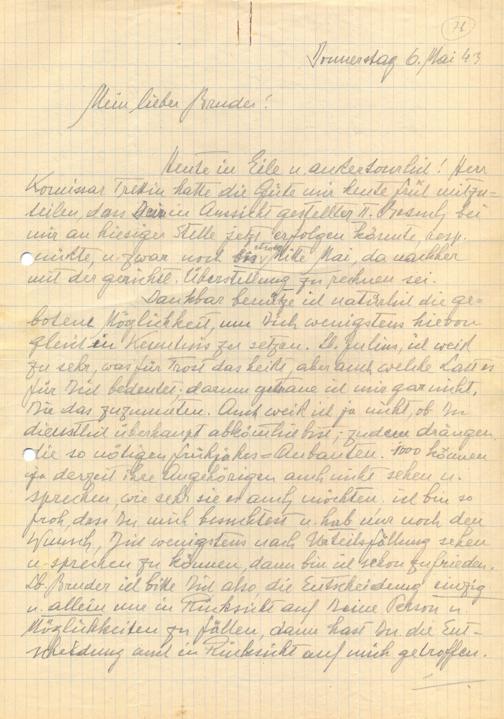 76
Donnerstag 6. Mai 43
Mein lieber Bruder!
Heute in Eile u. ausertourlich! Herr
Komissar Trettin hatte die Güte mir heute früh mitzu-
teilen, dass Dein in Aussicht gestellter II. Besuch bei
mir an hiesiger Stelle jetzt erfolgen könnte, resp.
müsste, u. zwar noch bis etwa Mitte Mai, da nachher
mit der gerichtl. Überstellung zu rechnen sei.
Dankbar benütze ich natürlich die ge-
botene Möglichkeit, um Dich wenigstens hievon
gleich in Kenntnis zu setzen. Lb. Julius, ich weiß
zu sehr, was für Trost das heißt, aber auch welche Last es
für Dich bedeutet; darum getraue ich mir gar nicht,
Dir das zuzumuten. Auch weiß ich ja nicht, ob Du
dienstlich überhaupt abkömmlich bist; zudem drängen
die so nötigen Frühjahrs-Anbauten. 1000 können
ja derzeit ihre Angehörigen auch nicht sehen u.
sprechen wie sehr sie es auch möchten. ich bin so
froh, dass Du mich besuchtest u. hab nur noch den
Wunsch, Dich wenigstens nach Urteilsfällung sehen
u. sprechen zu können, dann bin ich schon zufrieden.
Lb. Bruder ich bitte Dich also, die Entscheidung einzig
u. allein nur in Rücksicht auf Deine Person u.
Möglichkeiten zu fällen, dann hast Du die Ent-
scheidung auch in Rücksicht auf mich getroffen.